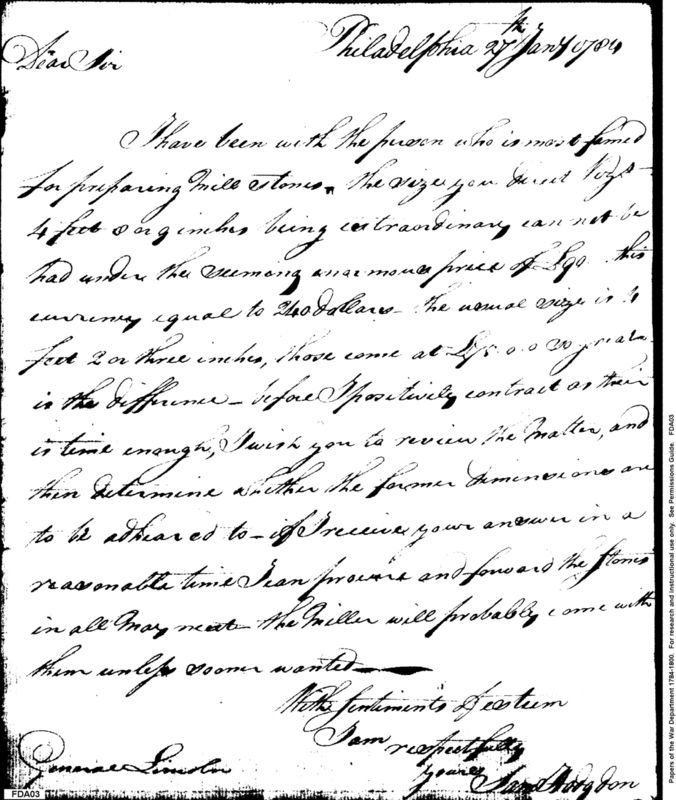 Philadelphia 27th Jany 1784
Dear Sir
I have been with the person who is most famed
for preparing Mill stones. the size you direct
4 feet 8 or 9 inches being extraordinary can not be
had under the seeming enormous price of £90 this
currency equal to 240 dollars - the usual size is 4
feet 2 or three inches, those come at so great
is the difference - before I positively contract as their
is time enough, I wish you to review the Matter, and
then determine whether the former dimensions are
to be adheared to - if I receive your answer in a
reasonable time I can procure and forward the Stones
in all May next - the Miller will probably come with
them unless sooner wanted
With sentiments of esteem
I am respectfully
yours
General Lincoln
Saml Hodgdon
FDA03
Papers of the War Department 1784-1800. For research and instructional use only. See Permissions Guide. FDA03